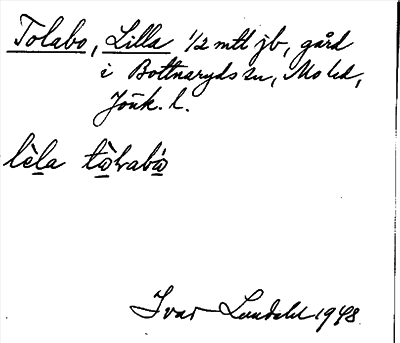 Tolabo, Lilla 1/2 mtl jb, gård
i Bottnaryds sn, Mo hd,
Jönk. l.
lèla tωlvabω
Ivar Lundahl 1948